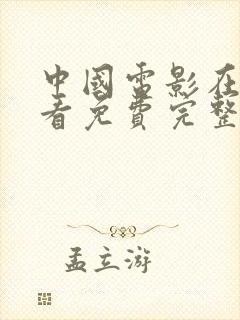 中國電影在
看免費完整
孟立游